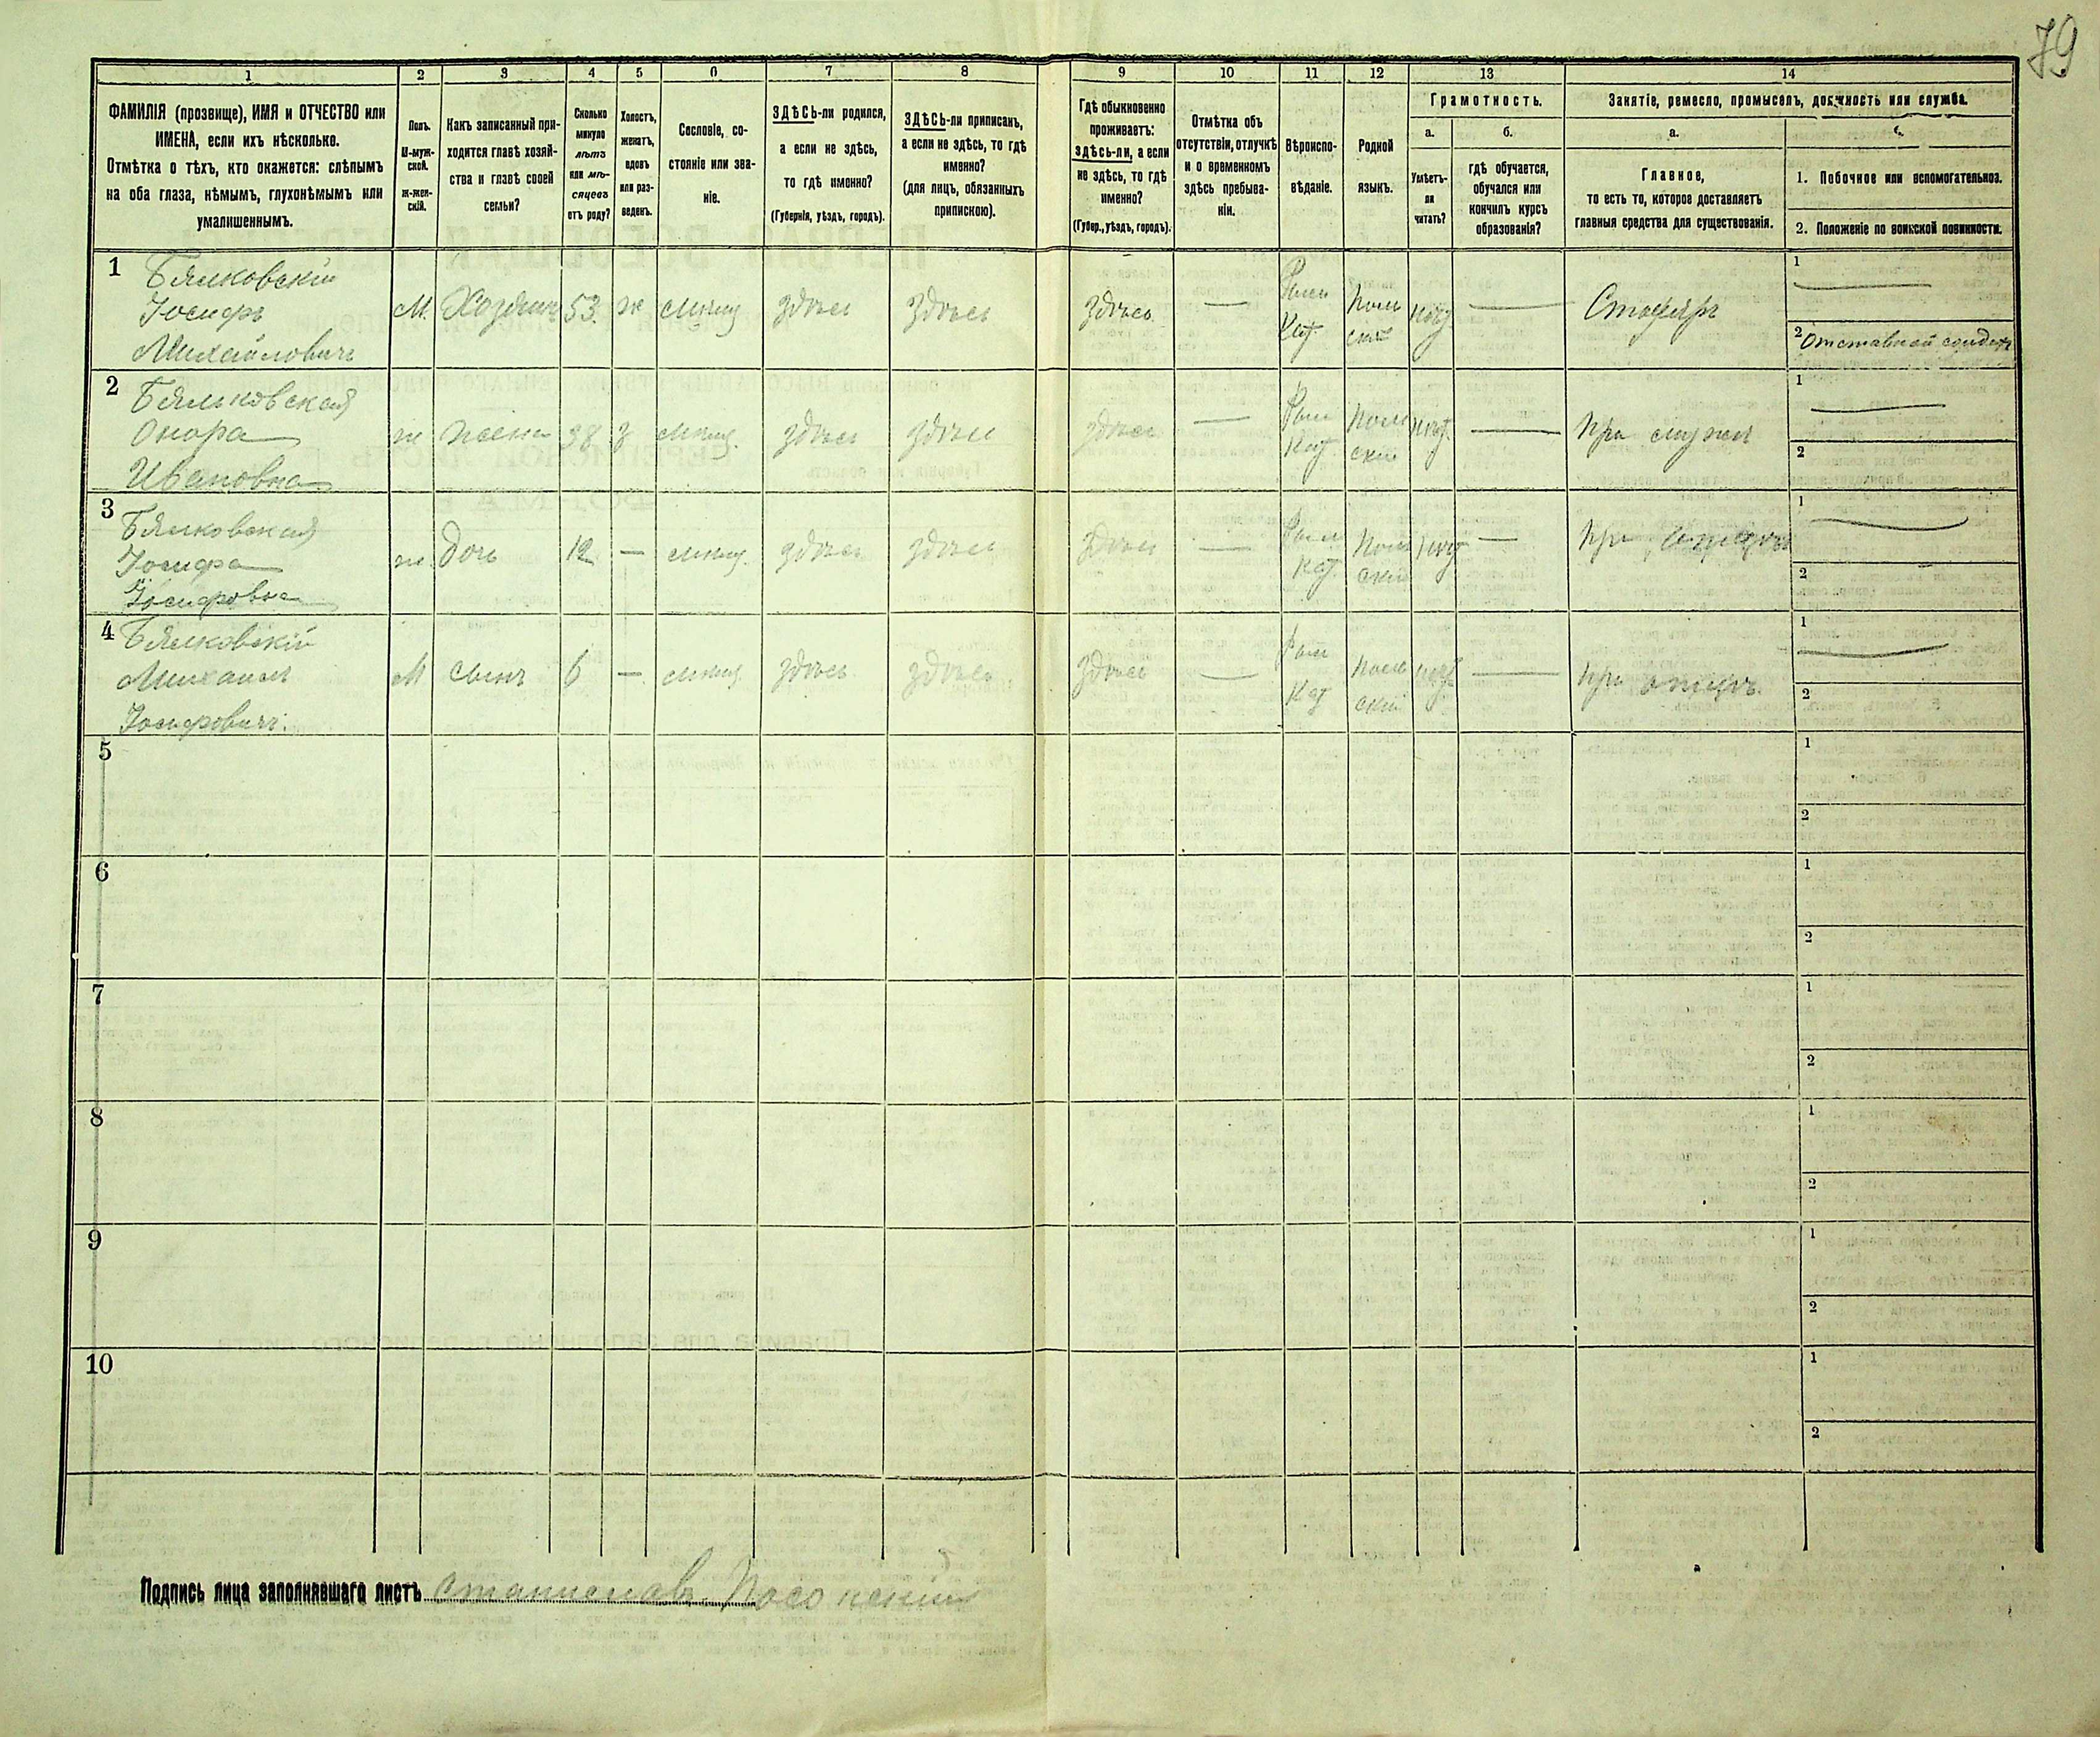 79
1 2 3 4 5 6 7 8 9 10 11 12 13 14
ФАМИЛІЯ (прозвище), ИМЯ и ОТЧЕСТВО или
ИМЕНА, если ихъ нѣсколько.
Отмѣтка о тѣхъ, кто окажется: слѣпымъ
на оба глаза, нѣмымъ, глухонѣмымъ или
умалишеннымъ.
Полъ.
М-муж-
ской.
Ж-жен-
скій.
Какъ записанный при-
ходится главѣ хозяй-
ства и главѣ своей
семьи?
Сколько
минуло
лѣтъ
или мѣ-
сяцевъ
отъ роду?
Холостъ,
женатъ,
вдовъ
или раз-
веденъ.
Сословіе, со-
стояніе или зва-
ніе.
ЗДѢСЬ-ли родился,
а если не здѣсь,
то гдѣ именно?
(Губернія, уѣздъ, городъ).
ЗДѢСЬ-ли приписанъ,
а если не здѣсь, то гдѣ
именно?
(для лицъ, обязанныхъ
припискою).
Гдѣ обыкновенно
проживаетъ:
здѣсь-ли, а если
не здѣсь, то гдѣ
именно?
(Губер., уѣздъ, городъ).
Отмѣтка объ
отсутствіи, отлучкѣ
и о временномъ
здѣсь пребыва-
ніи.
Вѣроиспо-
вѣданіе.
Родной
языкъ.
Грамотность.
а.
Умѣетъ-
ли
читать?
б.
гдѣ обучается,
обучался или
кончилъ курсъ
образованія?
Занятіе, ремесло, промыселъ, должность или служба.
а.
Главное,
то есть то, которое доставляетъ
главныя средства для существованія.
1. Побочное или вспомогательное.
2. Положеніе по воинской повинности.
1 Бялковскій
Іосифъ
Михайловичъ
М. Хозяинъ 53. ж мѣщ здѣсь здѣсь здѣсь — Рим Кат. Поль скій нѣтъ — Столяръ
1 —
2 Отставной солдатъ
2 Бялковская
Онора
Ивановна
ж жена 38 з мѣщ. здѣсь здѣсь здѣсь — Рим Кат. Поль скій нѣтъ — при мужѣ
1 —
2
3 Бялковская
Іосифа
Іосифовна
ж. дочь 12 — мѣщ. здѣсь здѣсь здѣсь — Рим Кат. Поль скій нѣтъ — при отцѣ
1 —
2
4 Бялковскій
Михаилъ
Іосифовичъ.
М сынъ 6 — мѣщ. здѣсь здѣсь здѣсь — Рим Кат Поль скій нѣтъ — при отцѣ.
1 —
2
5
1
2
6
1
2
7
1
2
8
1
2
9
1
2
10
1
2
Подпись лица заполнявшаго листъ Станиславъ